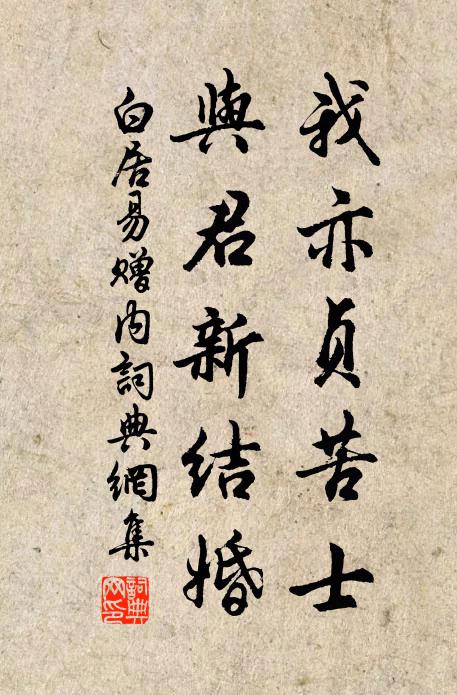 我亦貞苦士
與君新結婚
白居易贈內詞典網集
詞典网印